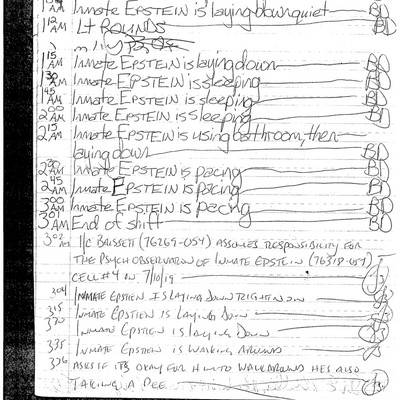 Inmate EPSTEIN is laying down quiet BD
1 12 AM Lt ROUNDS BD
1 15 AM Inmate EPSTEIN is laying down BD
1 30 AM Inmate EPSTEIN is sleeping BD
1 45 AM Inmate EPSTEIN is sleeping BD
2 00 AM Inmate EPSTEIN is sleeping BD
2 15 AM Inmate EPSTEIN is using bathroom, then
laying down BD
2 30 AM Inmate EPSTEIN is pacing BD
2 45 AM Inmate EPSTEIN is pacing BD
3 00 AM Inmate EPSTEIN is pacing BD
3 01 AM End of shift BD
3 02 AM I/C BRISSETT (76269-054) ASSUMES RESPONSIBILITY FOR
THE PSYCH OBSERVATION OF INMATE EPSTEIN (76318-054)
CELL #4 ON 7/10/19
304 INMATE EPSTIEN IS LAYING DOWN RIGHT NOW
315 INMATE EPSTIEN IS LAYING DOWN
320 INMATE EPSTIEN IS LAYING DOWN
335 INMATE EPSTIEN IS WALKING AROUND
336 ASKS IF ITS OKAY FOR HIM TO WALK AROUND HES ALSO
TAKING A PEE